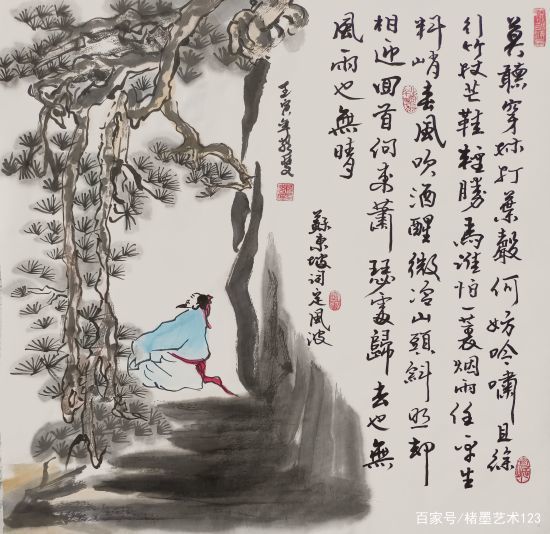 莫聽穿林打葉聲何妨吟嘯且徐
行竹杖芒鞋輕勝馬誰怕一蓑烟雨任平生
料峭春風吹酒醒微冷山頭斜照却
相迎回首向来蕭瑟處歸去也無
風雨也無晴
蘇東坡词定風波
壬寅年
百家号/楮墨艺术123